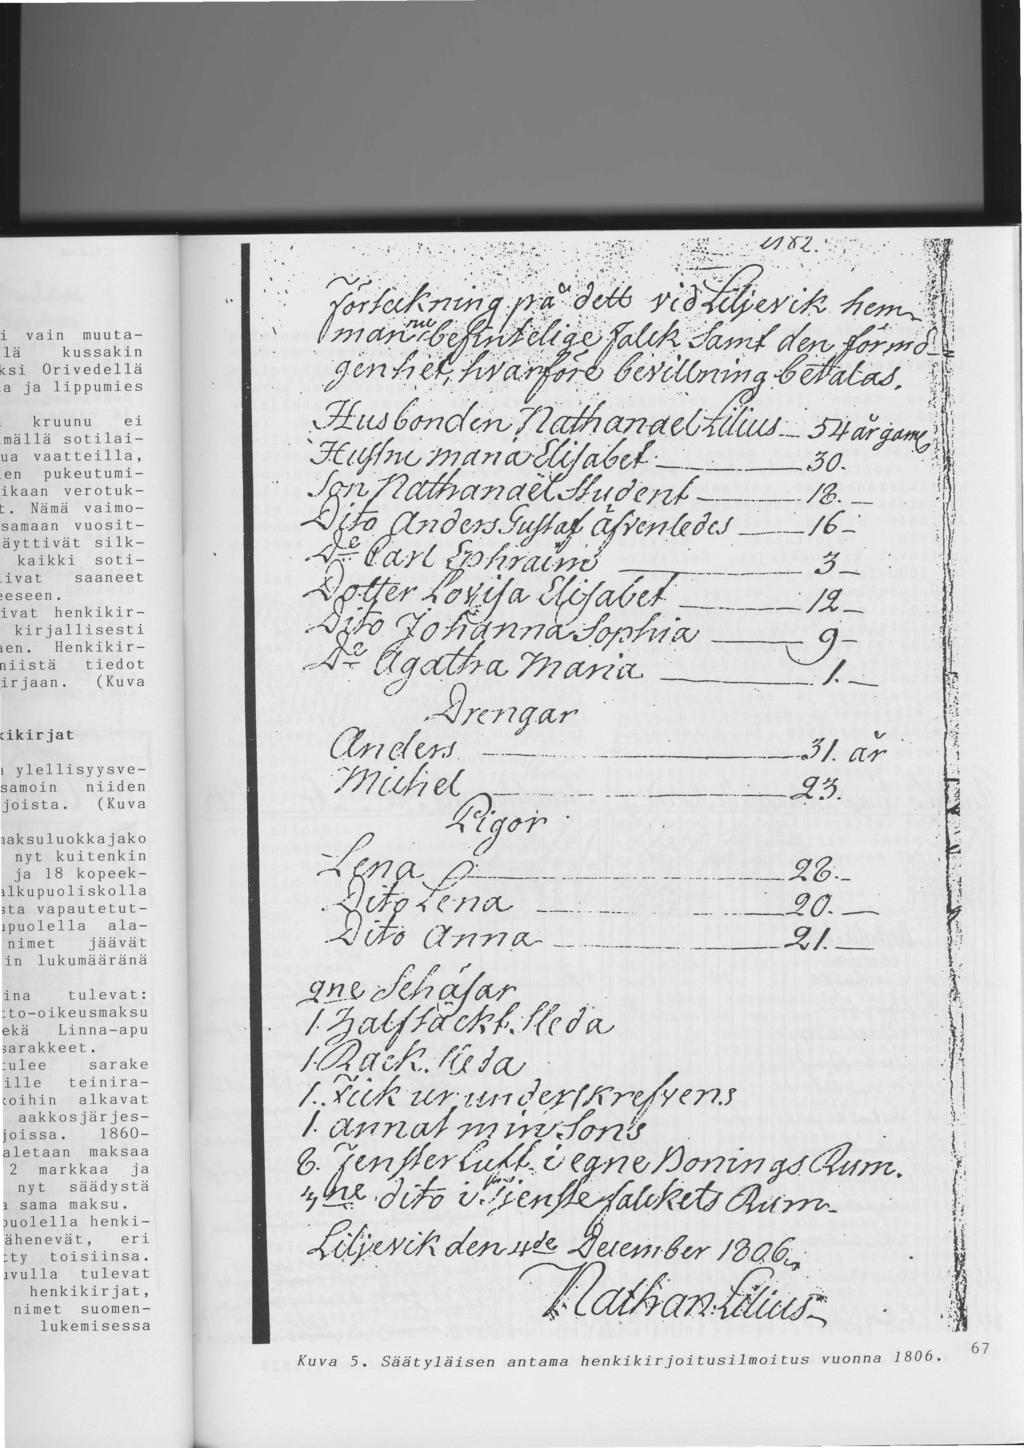 i vain muuta-
lä kussakin
ksi Orivedellä
a ja lippumies
kruunu ei
mällä sotilai-
ua vaatteilla,
en pukeutumi-
ikaan verotuk-
t. Nämä vaimo-
samaan vuosit-
äyttivät silk-
kaikki soti-
ivat saaneet
eeseen.
ivat henkikir-
kirjallisesti
aen. Henkikir-
niistä tiedot
irjaan. (Kuva
kikirjat
ylellisyysve-
samoin niiden
joista. (Kuva
maksuluokkajako
nyt kuitenkin
ja 18 kopeek-
alkupuoliskolla
sta vapautetut-
upuolella ala-
nimet jäävät
in lukumääränä
ina tulevat:
to-oikeusmaksu
ekä Linna-apu
sarakkeet.
tulee sarake
ille teinira-
koihin alkavat
aakkosjärjes-
joissa. 1860-
aletaan maksaa
2 markkaa ja
nyt säädystä
sama maksu.
puolella henki-
ähenevät, eri
tty toisiinsa.
avulla tulevat
henkikirjat,
nimet suomen-
lukemisessa
Förteckning på dett vid Liljevik hem-
man befintelige Falck Samt den förmö-
genhet, hvarföre bevillning betalas.
Husbonden Nathanael Lilius 54 år game
Hustru Maria Elisabet 30.
Son Nathanaël Student 18.
Dito Anders Gustaf äfvenledes 16
De Carl Ephraim 3
Dotter Lovisa Elisabet 12
Dito Johanna Sophia 9
De Agatha Maria 1.
Drengar
Anders 31. år
Michel 23.
Pigor
Lena 28.
Dito Lena 20.
Dito Anna 21.
2ne Schäsar
1. Halftäckt Sleda
1 Rack. Sleda
1. Fick ur
1. annat min Sons
8. Fenster Luft i egne Bonings Rum.
4ne dito i Tjenste falckets Rum
Liljevik den 4de December 1806.
Nathan Lilius
Kuva 5. Säätyläisen antama henkikirjoitusilmoitus vuonna 1806.
67